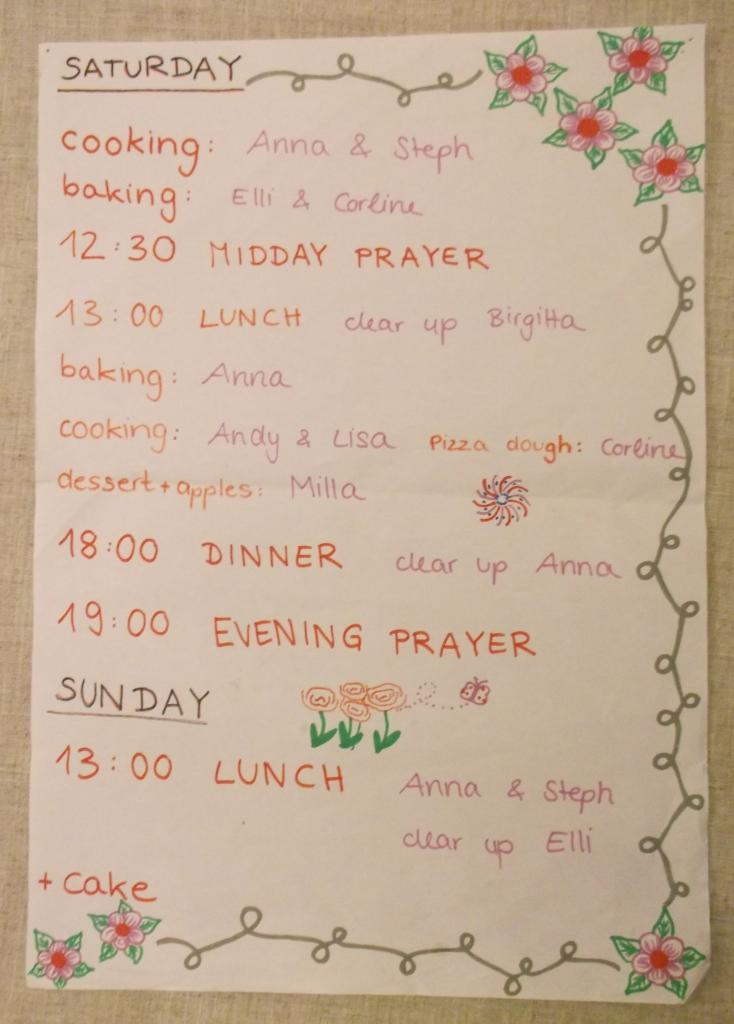 SATURDAY
cooking: Anna & Steph
baking: Elli & Corline
12:30 MIDDAY PRAYER
13:00 LUNCH clear up Birgitta
baking: Anna
cooking: Andy & Lisa Pizza dough: Corline
dessert + apples: Milla
18:00 DINNER clear up Anna
19:00 EVENING PRAYER
SUNDAY
13:00 LUNCH Anna & Steph
clear up Elli
+ cake